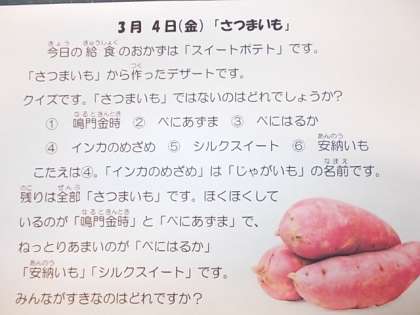 3月 4日(金)「さつまいも」
今日の給食のおかずは「スイートポテト」です。
「さつまいも」から作ったデザートです。
クイズです。「さつまいも」ではないのはどれでしょうか？
① 鳴門金時 ② べにあずま ③ べにはるか
④ インカのめざめ ⑤ シルクスイート ⑥ 安納いも
こたえは④。「インカのめざめ」は「じゃがいも」の名前です。
残りは全部「さつまいも」です。ほくほくして
いるのが「鳴門金時」と「べにあずま」で、
ねっとりあまいのが「べにはるか」
「安納いも」「シルクスイート」です。
みんながすきなのはどれですか？